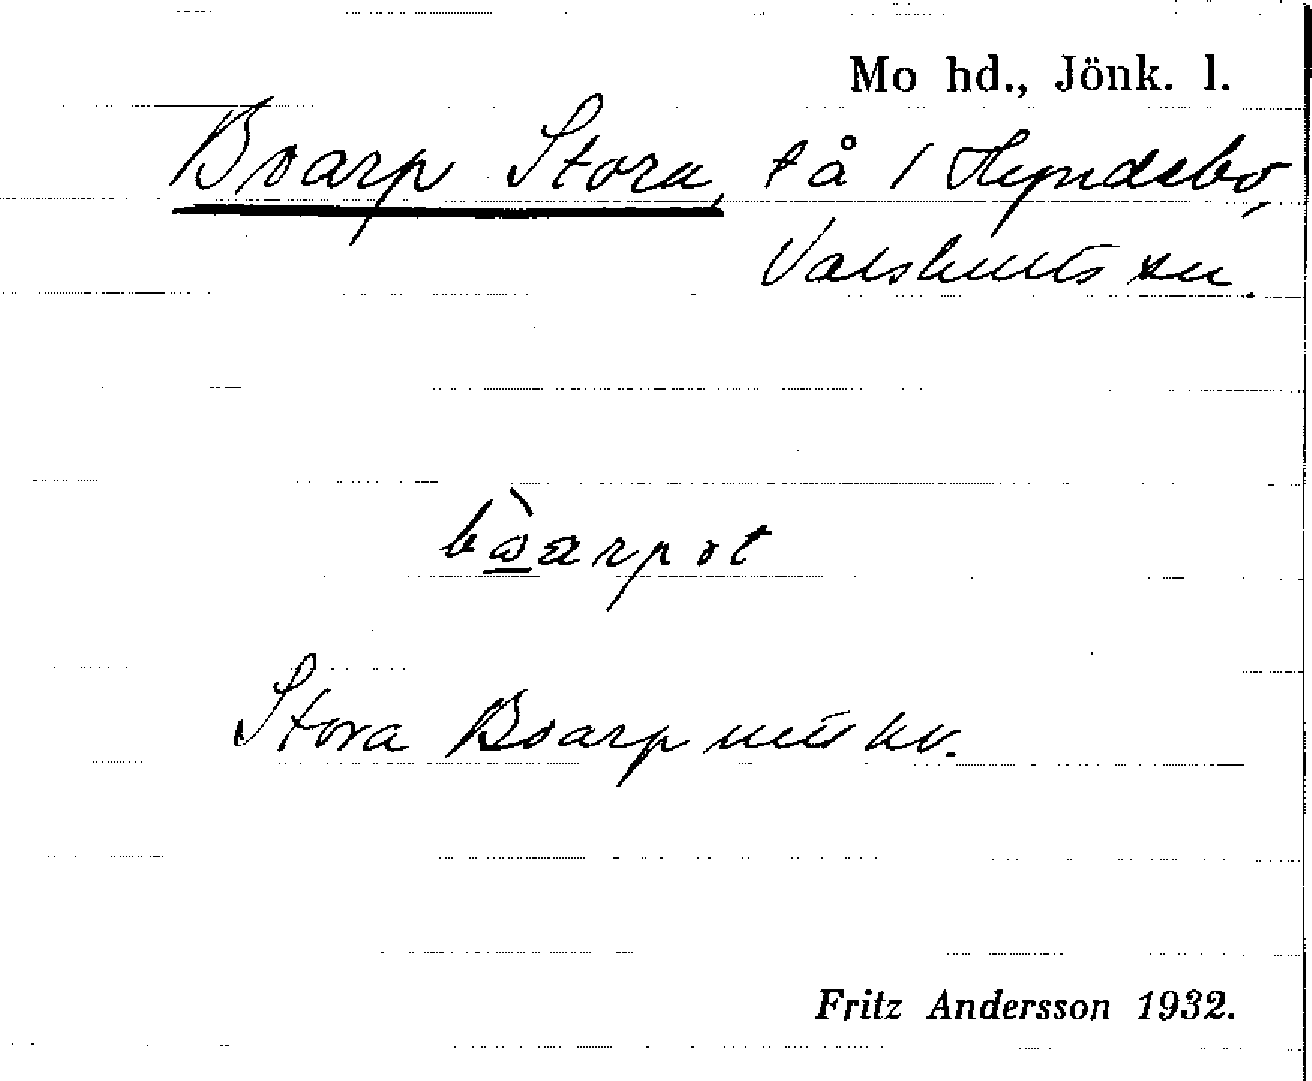 Mo hd., Jönk. l.
Boarp Stora, tå / Hyndsbo,
Valshults sn.
bòarpot
Stora Boarp
Fritz Andersson 1932.